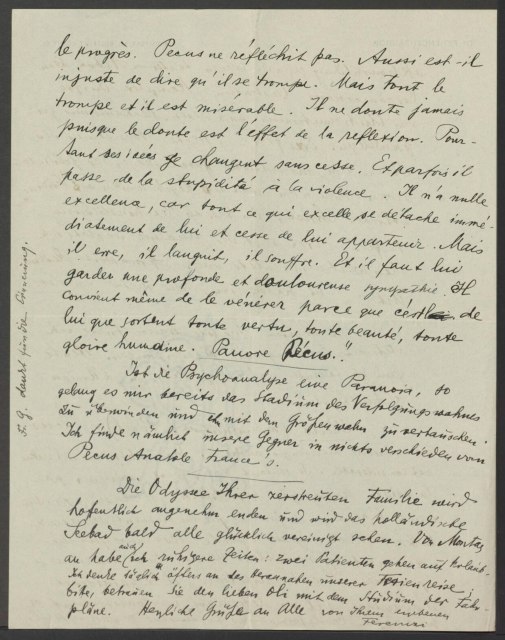 le progrès. Pecus ne réfléchit pas. Aussi est-il
injuste de dire qu'il se trompe. Mais tout le
trompe et il est misérable. Il ne doute jamais
puisque le doute est l'effet de la reflexion. Pour-
tant ses idées changent sans cesse. Et parfois il
passe de la stupidité à la violence. Il n'a nulle
excellence, car tout ce qui excelle se détache immé-
diatement de lui et cesse de lui appartenir. Mais
il erre, il languit, il souffre. Et il faut lui
garder une profonde et douloureuse sympathie. Il
convient même de le vénérer parce que c'est de
lui que sortent toute vertu, toute beauté, toute
gloire humaine. Pauvre Pecus."
Ist die Psychoanalyse eine Paranoia, so
gelang es mir bereits das Stadium des Verfolgungswahnes
zu überwinden und mit dem Größenwahn zu vertauschen.
Ich finde nämlich unsere Gegner in nichts verschieden vom
Pecus Anatole France's.
Die Odyssee Ihrer zerstreuten Familie wird
hoffentlich angenehm enden und wird das holländische
Seebad bald alle glücklich vereinigt sehen. Von Montag
an habe auch ich ruhigere Zeiten: zwei Patienten gehen auf Urlaub.
Ich denke täglich öfters an das Herannahen unserer Ferienreise,
bitte, betrauen Sie den lieben Oli mit dem Studium der Fahr-
pläne. Herzliche Grüße an Alle von Ihrem
Ferenczi
Fr. G. dankt für die Erinnerung.